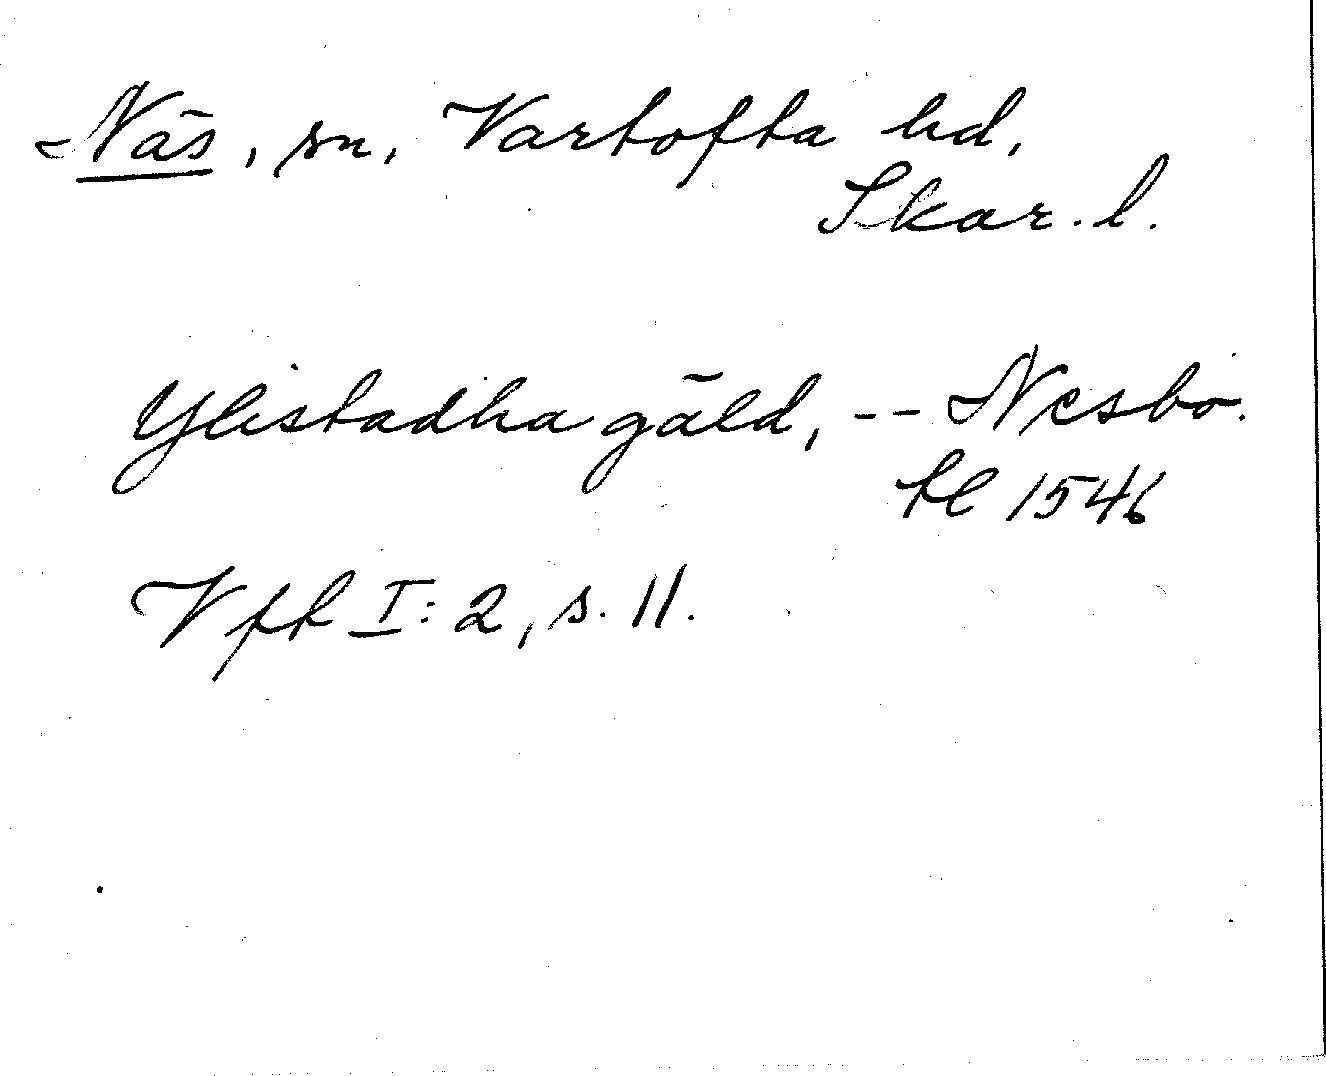 Näs, sn, Vartofta hd,
Skar. l.
Ylistadha gäld, -- Nesbo.
tl 1546
Vft I: 2, s. 11.